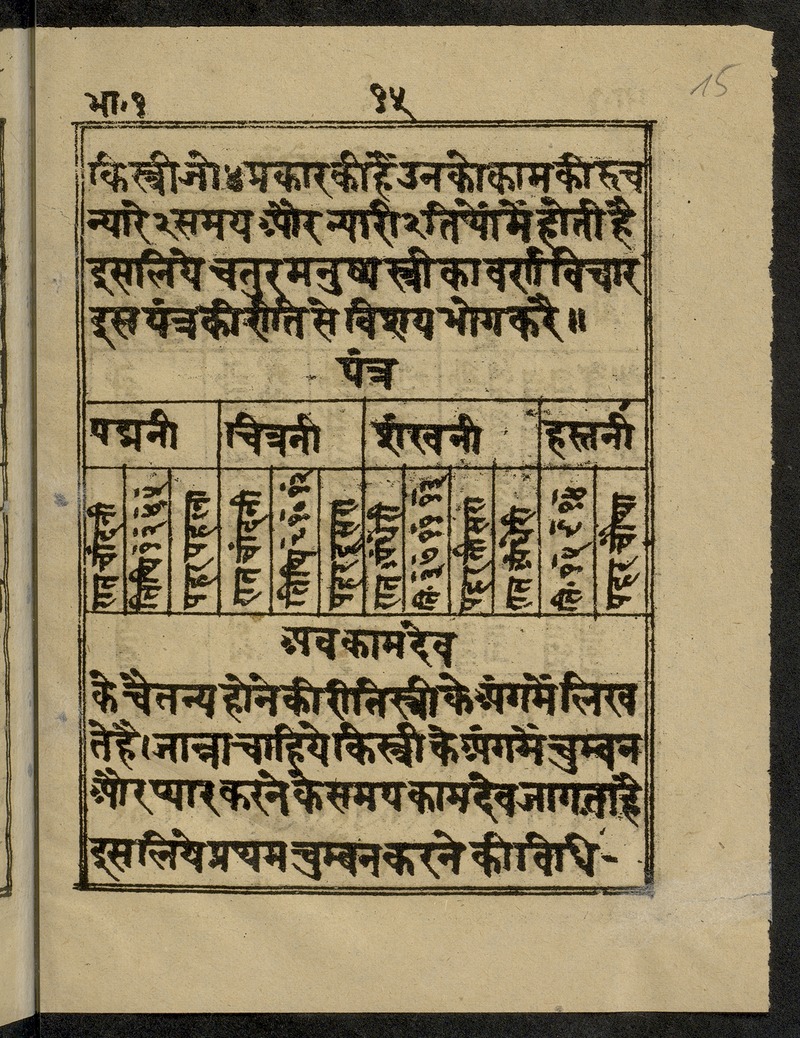 भा.१
१५
15
कि स्त्री जो ४ प्रकार की हैं उन को काम की रुच
न्यारे २ समय और न्यारी २ तिथों में होती है
इस लिये चतुर मनुष्य स्त्री का वर्ण विचार
इस यंत्र की रीति से विशय भोग करै॥
यंत्र
पद्मनी चित्रनी शंखनी हस्तनी
रात चांदनी
तिथि १ २ ४ ५
पहर पहला
रात चांदनी
तिथि ८ १० १२
पहर दूसरा
रात अंधेरी
ति. ३ ७ ११ १३
पहर तीसरा
रात अंधेरी
ति. १५ ९ १४
पहर चौथा
अब कामदेव
के चैतन्य होने की रीति स्त्री के अंग में लिख
ते है। जान्ना चाहिये कि स्त्री के अंग में चुम्बन
और प्यार करने के समय कामदेव जागता है
इस लिये प्रथम चुम्बन करने की विधि-